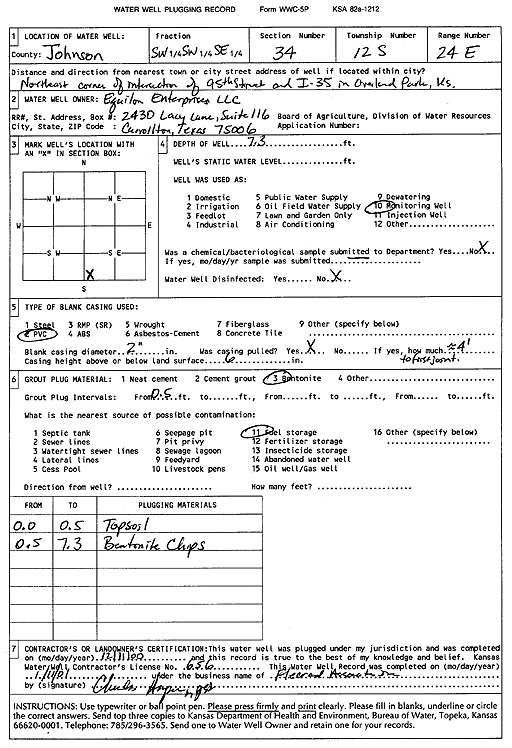 WATER WELL PLUGGING RECORD Form WWC-5P KSA 82a-1212
1 LOCATION OF WATER WELL: Fraction Section Number Township Number Range Number
County: Johnson SW 1/4 SW 1/4 SE 1/4 34 12 S 24 E
Distance and direction from nearest town or city street address of well if located within city?
Northeast corner of intersection of 95th Street and I-35 in Overland Park, Ks.
2 WATER WELL OWNER: Equilon Enterprises LLC
RR#, St. Address, Box #: 2430 Lacy Lane, Suite 116 Board of Agriculture, Division of Water Resources
City, State, ZIP Code : Carrollton, Texas 75006 Application Number:
3 MARK WELL'S LOCATION WITH AN "X" IN SECTION BOX:
N
N W N E
W E
S W S E
X
S
4 DEPTH OF WELL.....7.3.....ft.
WELL'S STATIC WATER LEVEL..........ft.
WELL WAS USED AS:
1 Domestic 5 Public Water Supply 9 Dewatering
2 Irrigation 6 Oil Field Water Supply 10 Monitoring Well
3 Feedlot 7 Lawn and Garden Only 11 Injection Well
4 Industrial 8 Air Conditioning 12 Other..........
Was a chemical/bacteriological sample submitted to Department? Yes....No X
If yes, mo/day/yr sample was submitted..........
Water Well Disinfected: Yes...... No X
5 TYPE OF BLANK CASING USED:
1 Steel 3 RMP (SR) 5 Wrought 7 Fiberglass 9 Other (specify below)
2 PVC 4 ABS 6 Asbestos-Cement 8 Concrete Tile
Blank casing diameter..2"..in. Was casing pulled? Yes X No..... If yes, how much ≈4'
Casing height above or below land surface....6....in. to first joint.
6 GROUT PLUG MATERIAL: 1 Neat cement 2 Cement grout 3 Bentonite 4 Other..........
Grout Plug Intervals: From 0.5 ft. to......ft., From.....ft. to.....ft., From..... to......ft.
What is the nearest source of possible contamination:
1 Septic tank 6 Seepage pit 11 Fuel storage 16 Other (specify below)
2 Sewer lines 7 Pit privy 12 Fertilizer storage
3 Watertight sewer lines 8 Sewage lagoon 13 Insecticide storage
4 Lateral lines 9 Feedyard 14 Abandoned water well
5 Cess Pool 10 Livestock pens 15 Oil well/Gas well
Direction from well? .......... How many feet? ..........
FROM TO PLUGGING MATERIALS
0.0 0.5 Topsoil
0.5 7.3 Bentonite Chips
7 CONTRACTOR'S OR LANDOWNER'S CERTIFICATION: This water well was plugged under my jurisdiction and was completed
on (mo/day/year) 12/11/00 and this record is true to the best of my knowledge and belief. Kansas
Water Well Contractor's License No. 656 This Water Well Record was completed on (mo/day/year)
under the business name of
by (signature)
INSTRUCTIONS: Use typewriter or ball point pen. Please press firmly and print clearly. Please fill in blanks, underline or circle
the correct answers. Send top three copies to Kansas Department of Health and Environment, Bureau of Water, Topeka, Kansas
66620-0001. Telephone: 785/296-3565. Send one to Water Well Owner and retain one for your records.